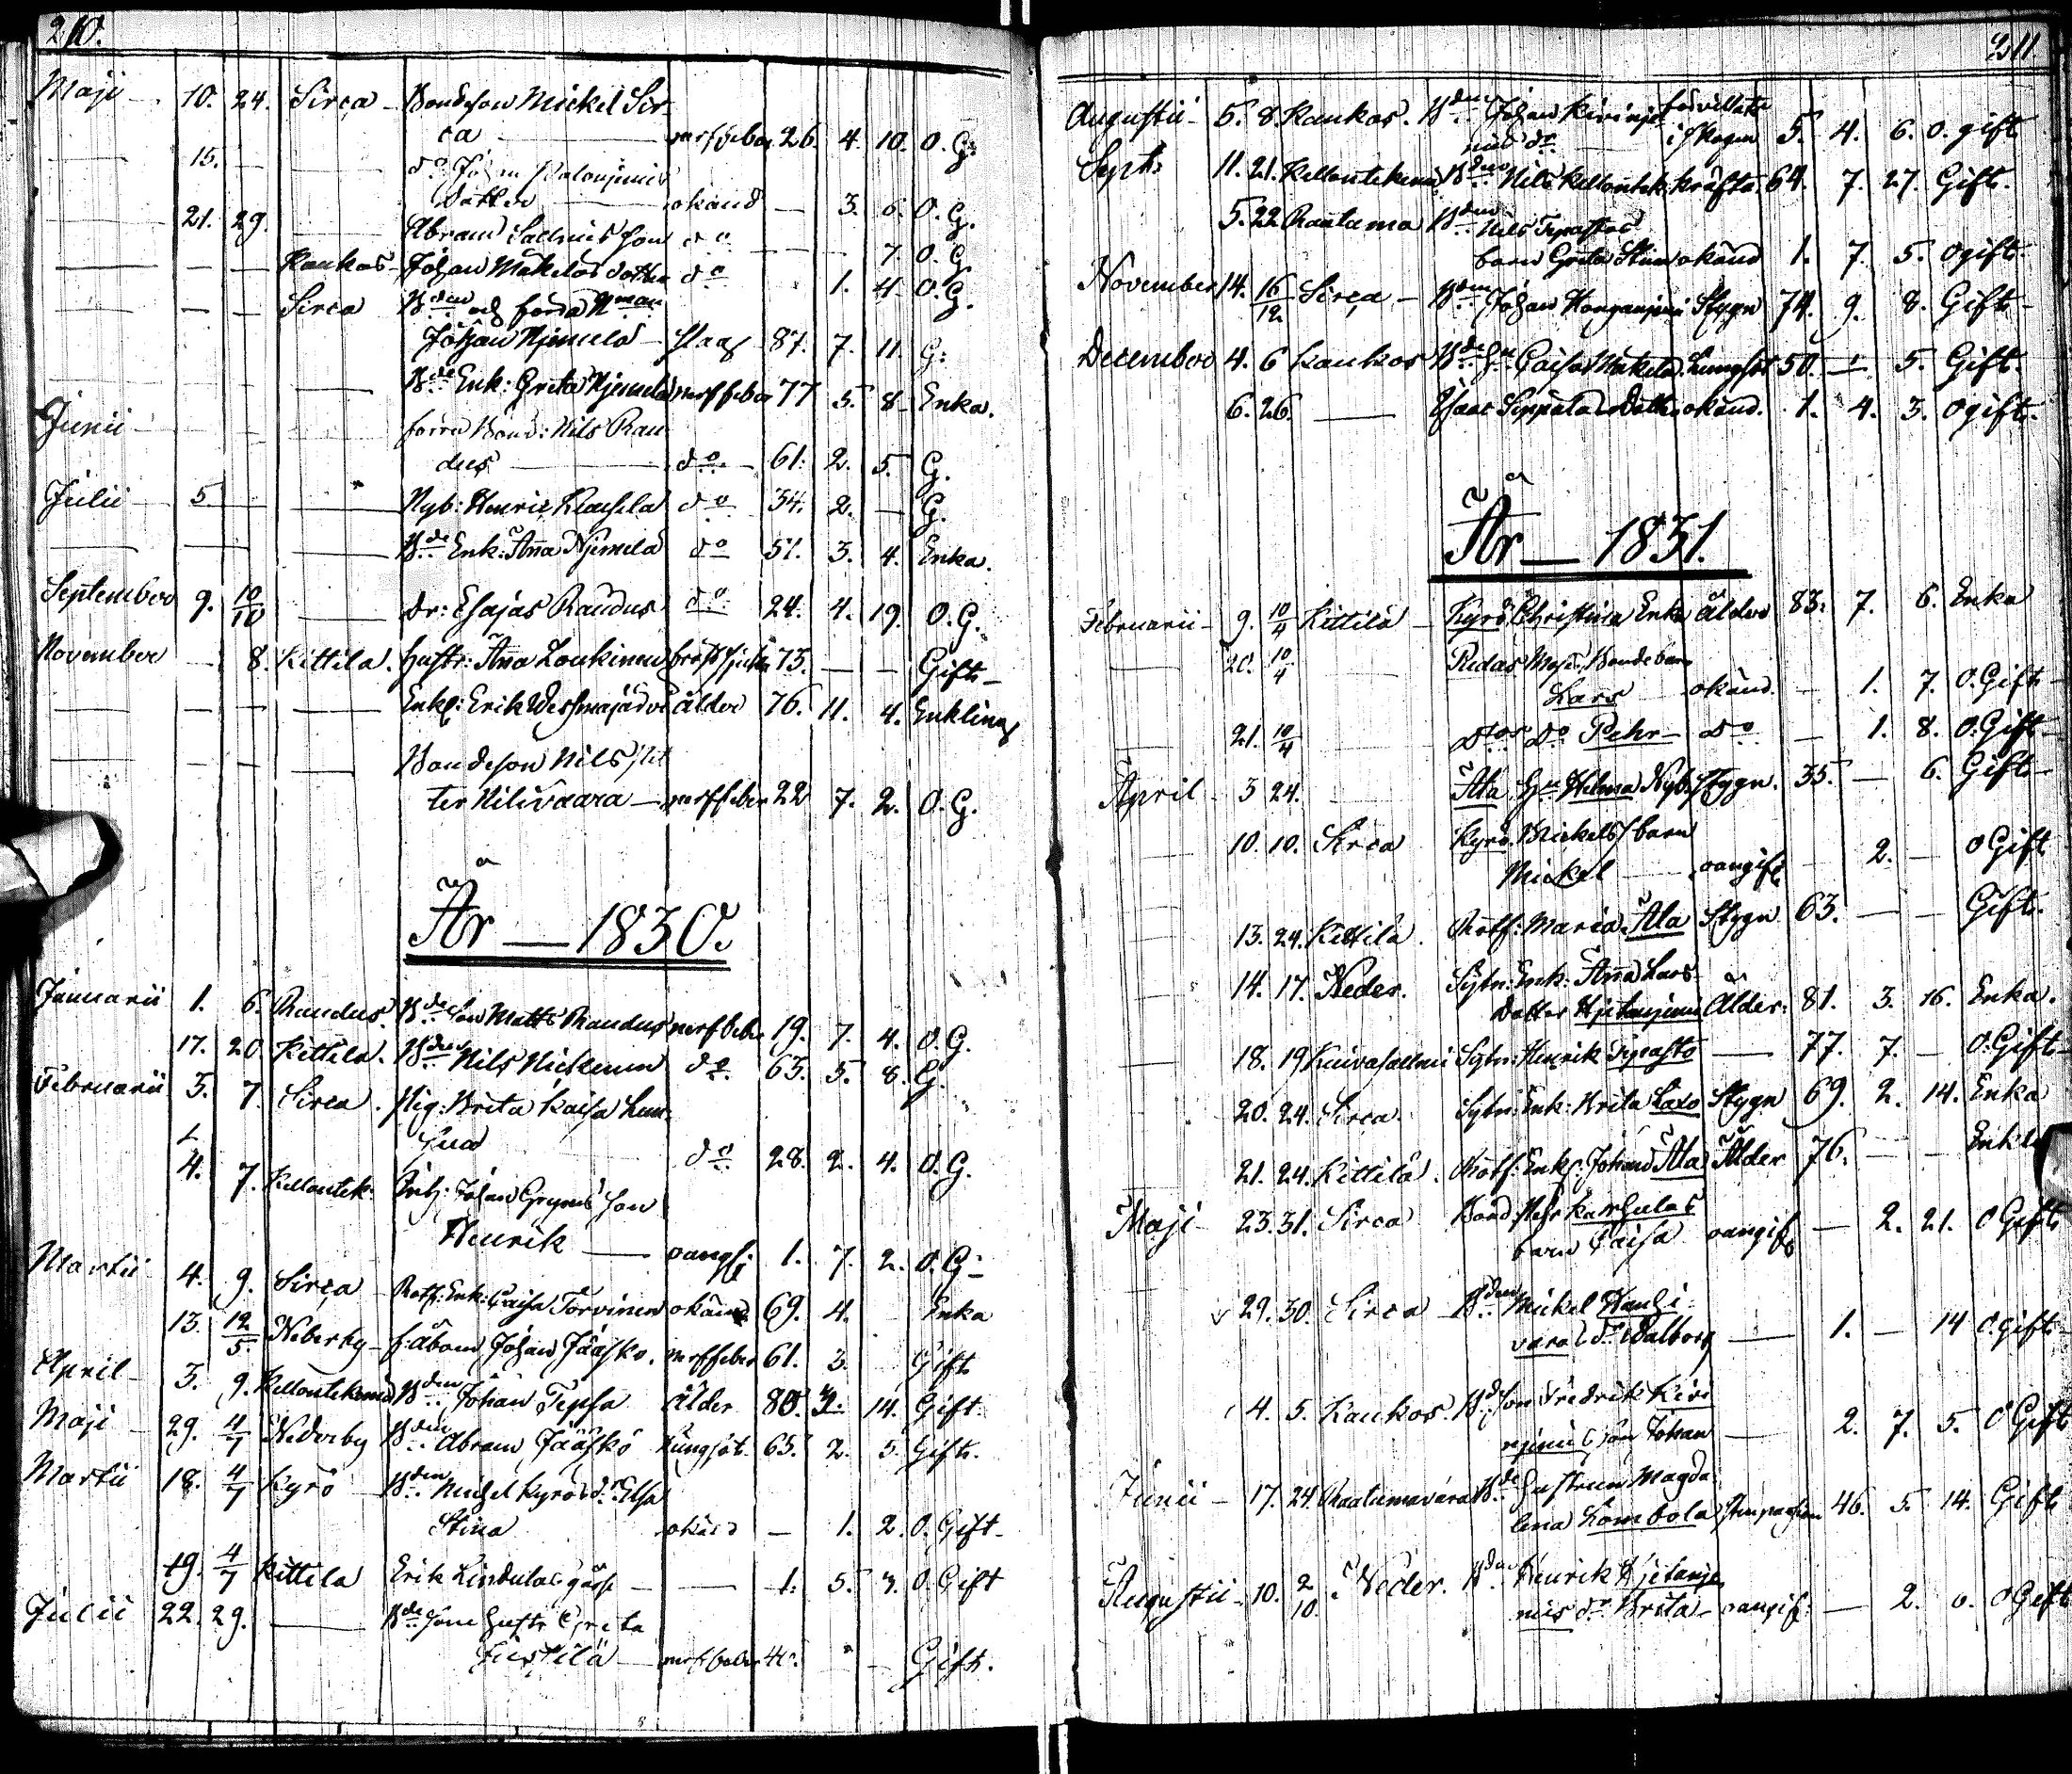 210.
Maji 10. 24. Sirca Bondeson Mickel Sir-
ca nerffeber 26. 4. 10. O. G:
15. do Johan
dotter okänd 3. 6. O. G.
21. 29. Abram Sallinis son do 7 O. G
Kaukos Johan Mäkelas dotter do 1. 4 O. G.
Sirca Bden och förra Nman
Johan Njemelä Slag 87. 7. 11. G:
Bde Enk: Greta Njemelä nerffeber 77 5. 8. Enka.
Junii förra Bond: Nils Rau
dus do 61. 2. 5. G.
Julii 5. Nyb: Henric do 34. 2. G.
Bde Enk: Anna Njemelä do 51. 3. 4. Enka.
September 9. 10/10 Dr: Esajas Raudus do 24. 4. 19. O. G.
November 8. Kittilä. Hustr: Anna Loukinen bröstsjuka 73. Gift
Enkl: Erik Wesmajärvi ålder 76. 11. 4. Enkling
Bondeson Nils Pet
ter Nilivaara nerffeber 22 7. 2. O. G.
År 1830.
Januarii 1. 6. Raudus. Bde Son Matts Raudus nerffeber 19. 7. 4. O. G.
17. 20 Kittilä. Bden Nils Nickunen do 63. 5. 8. G.
Februarii 5. 7. Sirca. Pig: Brita Kaisa
do 28. 2. 4. O. G.
4. 7. Kellontek. Johan son
Henrik oangif: 1. 7. 2. O. G:
Martii 4. 9. Sirca Rotf: Enk: Caisa Torvinen okänd 69. 4. Enka
13. 12/5. Nederby f: åboen Johan Jääskö. nerffeber 61. 3. Gift
April 3. 9. Kellontekemä Bden Johan Tepsa Ålder 80. 14. Gift
Maji 29. 4/7 Nederby Bden Abram Jääskö Lungsot. 65. 2. 5. Gift.
Martii 18. 4/7 Kyrö Bden Michel Kyrös dr Elsa
Stina okänd 1. 2. O. Gift
19. 4/7 Kittilä Erik Lindulas gosse 1. 5. 3. O. Gift
Julii 22. 29. Bde Sons Hustr Greta
nerffeber 40. Gift.
211.
Augustii 5. 8. Kaukos. Bden Johan Kirinje förvillade
mis dr i skogen 5. 4. 6. O. gift
Sept: 11. 21. Kellontekemä Bden Nils Kellontek: Kräfta 64. 7. 27. Gift.
5. 22 Raatama Bden Nils Tepastos
barn Greta Stina okänd 1. 7. 5. Ogift.
November 14. 16/12 Sirca Bden Johan Honganjemi Stygn 74. 9. 8. Gift
December 4. 6 Kaukos Bde Hu Caisa Mäkelä. Lungsot 50. 5. Gift.
6. 26. Isaac Seppälas Dotter okänd. 1. 4. 3. Ogift.
År 1831.
Februarii 9. 10/4 Kittilä Kyrö Christina Enka ålder 83. 7. 6. Enka
20. 10/4 Bondebarn
Lars okänd. 1. 7. O. Gift
21. 10/4 Dtos Do Pehr do 1. 8. O. Gift
April 3 24. Ala Hu Helena Nyb. Stygn. 35. 6. Gift
10. 10. Sirca Kyrö Mickels barn
Mickel oangif: 2. O Gift
13. 24. Kittilä. Rotf: Maria Ala Stygn 63. Gift.
14. 17. Neder. Sytn: Enk: Anna Lars
Dotter Hjetanjemi Ålder: 81. 3. 16. Enka.
18. 19 Kuivasallmi Sytn: Henrik Tepasto 77. 7. O. Gift
20. 24. Sirca. Sytn: Enk: Brita Laxo Stygn 69. 2. 14. Enka
21. 24. Kittilä. Rotf: Enkl: Johan Ala Ålder 76. Enkl
Maji 23. 31. Sirca Bond Pehr Karhulas
barn Caisa oangif 2. 21. O Gift
29. 30. Sirca Bden Mickel Hanhi-
varas dr Walborg 1. 14 O. gift
4. 5. Kaukos Bd. Son Fredrik Kiri
njemis son Johan 2. 7. 5. O Gift
Junii 17. 24. Raatamavara Bde Hustrun Magda
lena Kömbola 46. 5. 14. Gift
Augustii 10. 2/10. Neder. Bden Henrik Hjetanje
mis dr Brita oangif: 2. 6. O Gift